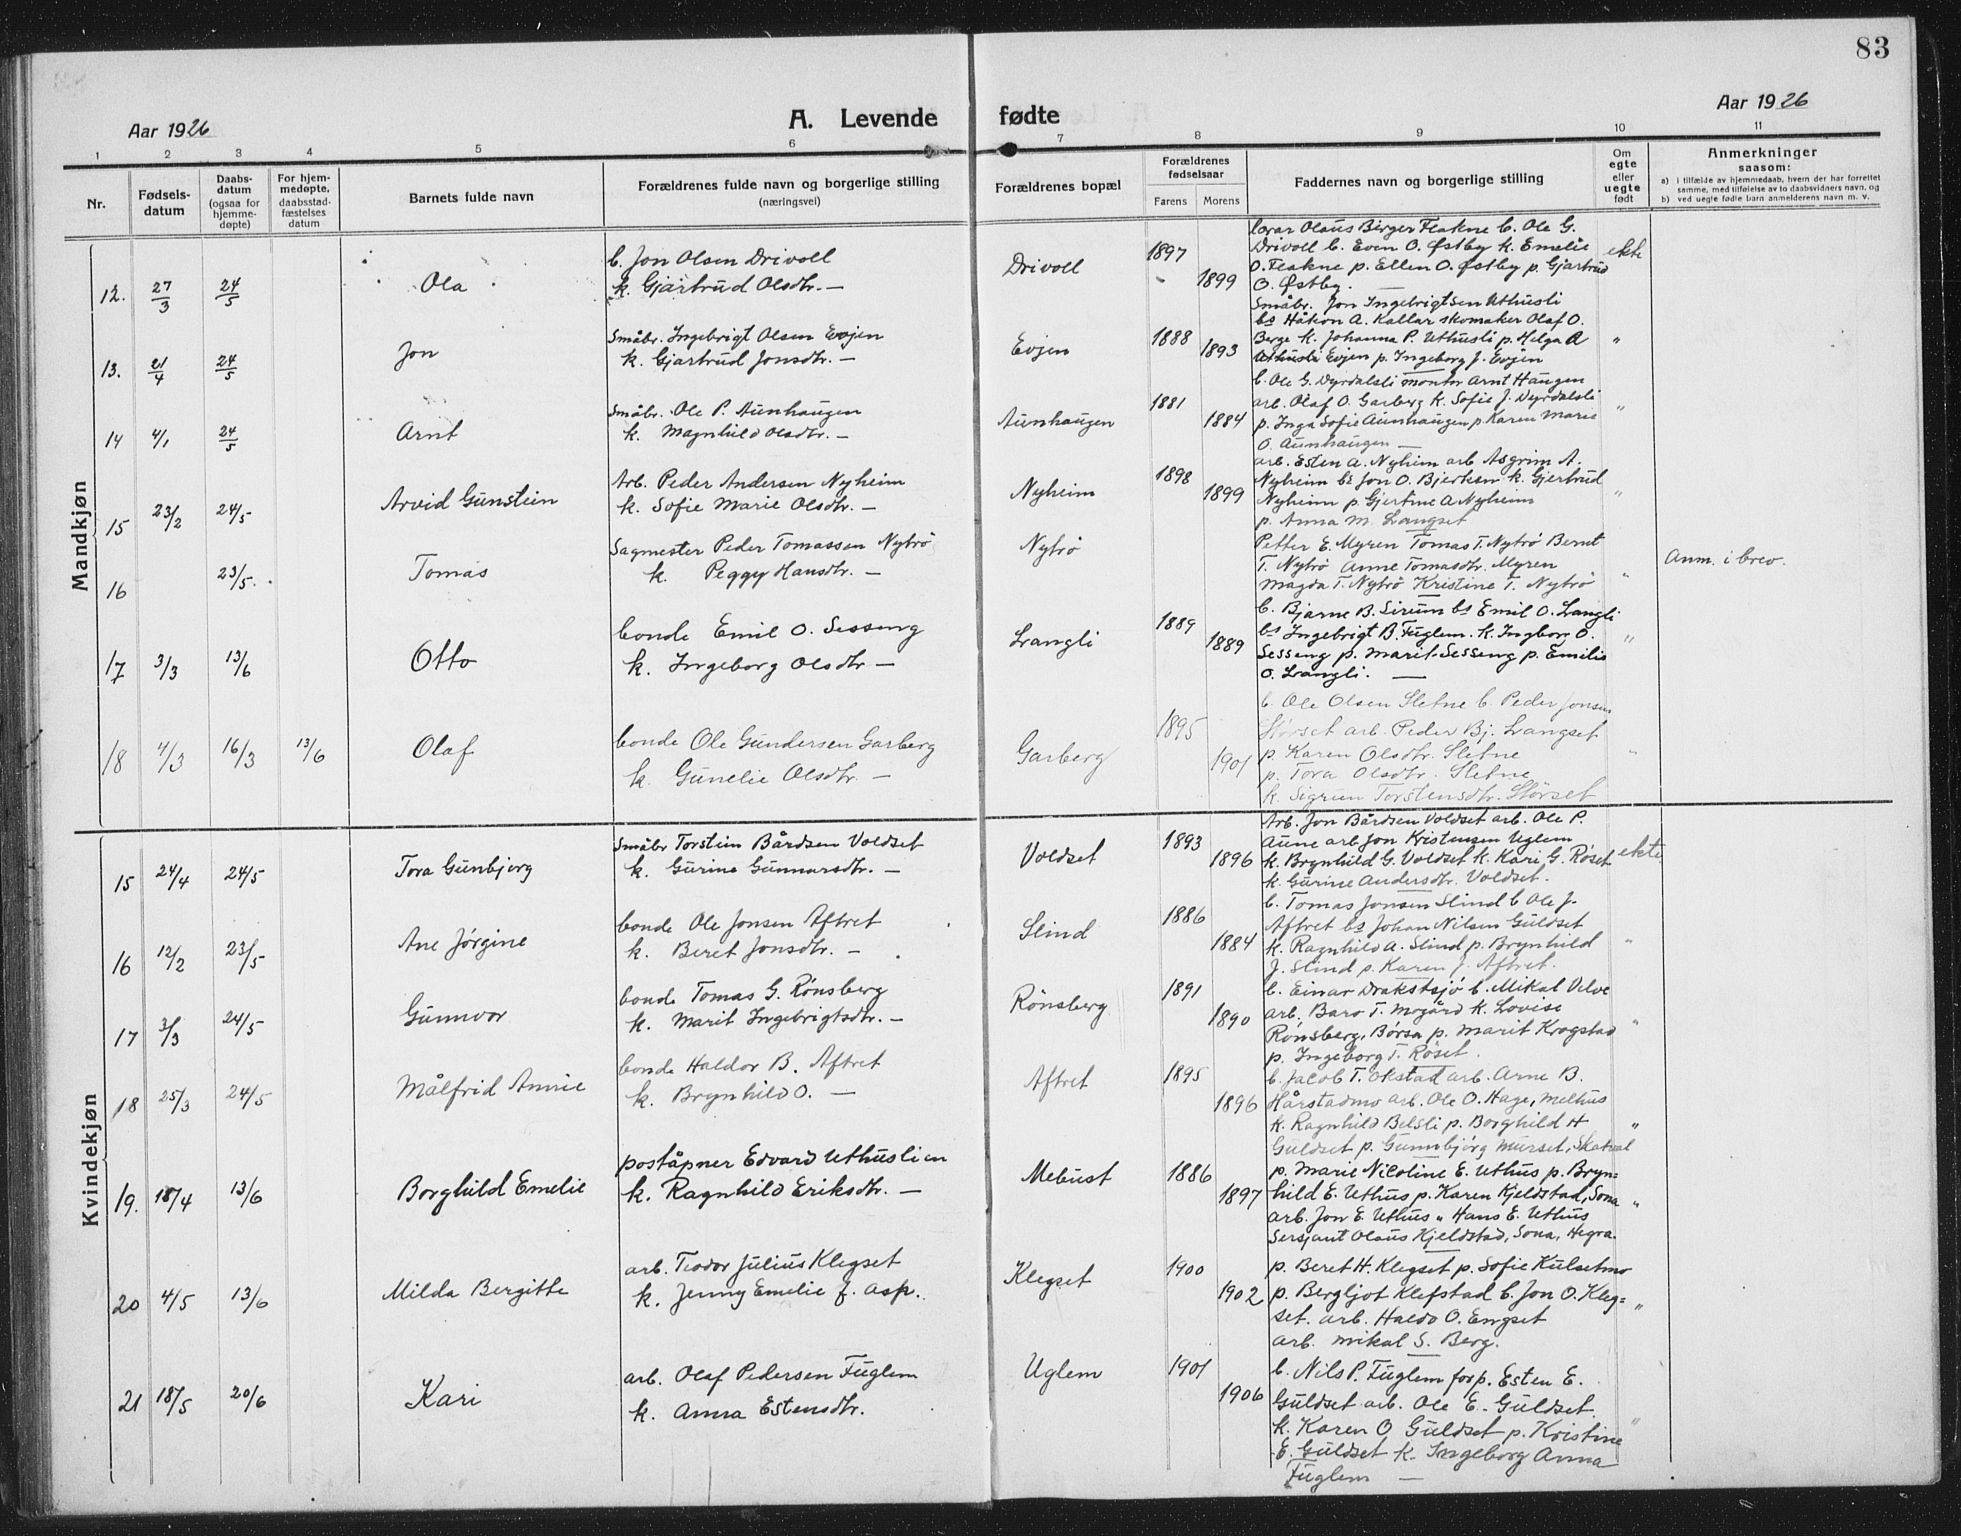 83
Aar 1926
A. Levende fødte
Aar 1926
1 2 3 4 5 6 7 8 9 10 11
Nr.
Fødsels-
datum
Daabs-
datum
(ogsaa for
hjemme-
døpte)
For hjem-
medøpte,
daabsstad-
fæstelses
datum
Barnets fulde navn
Forældrenes fulde navn og borgerlige stilling
(næringsvei)
Forældrenes bopæl
Forældrenes
fødselsaar
Farens Morens
Faddernes navn og borgerlige stilling
Om
egte
eller
uegte
født
Anmerkninger
saasom:
a) i tilfælde av hjemmedaab, hvem der har forrettet
samme, med tilføielse av to daabsvidners navn, og
b) ved uegte fødte barn anmelderens navn m. v.
Mandkjøn
12. 27/3 24/5 Ola
b. Jon Olsen Drivoll
k. Gjartrud Olsdtr. —
Drivoll 1897 1899
Olaus Birger Flakne b. Ole G.
Drivoll b. Even O. Østby k. Emelie
O. Flakne p. Ellen O. Østby p. Gjartrud
O. Østby. —
ekte
13. 21/4 24/5 Jon
Småbr. Ingebrigt Olsen Evjen
k. Gjartrud Jonsdtr. —
Evjen 1888 1893
Småbr. Jon Ingebrigtsen Uthusli
bs Håkon A. Kallar skomaker Olaf O.
Berge k. Johanna P. Uthusli p. Helga A
Evjen p. Ingeborg J. Evjen
"
14 4/1 24/5 Arnt
Småbr. Ole P. Aunhaugen
k. Magnhild Olsdtr. —
Aunhaugen 1881 1884
b. Ole G. Dyrdalsli montør Arnt Haugen
arb. Olaf O. Garberg k. Sofie J. Dyrdalsli
p. Inga Sofie Aunhaugen p. Karen Marie
O. Aunhaugen —
"
15 23/2 24/5 Arvid Gunstein
Arb. Peder Andersen Nyheim
k. Sofie Marie Olsdtr. —
Nyheim 1898 1899
arb. Esten A. Nyheim arb Asgrim A.
Nyheim bs Jon O. Bjerkan k. Gjertrud
Nyheim p. Gjertine A Nyheim
p. Anna M. Langset
"
16 23/5. Tomas
Sagmester Peder Tomassen Nytrö
k. Peggy Hansdtr. —
Nytrö
Petter E. Myren Tomas T. Nytrö Bernt
T. Nytrö Anne Tomasdtr. Myren
Magda T. Nytrö Kristine T. Nytrö
"
Anm. i brev.
17 3/3 13/6 Otto
bonde Emil O. Sesseng
k. Ingeborg Olsdtr —
Langli 1889 1889
b. Bjarne B. Sirum bs Emil O. Langli
bs Ingebrigt B. Fuglem. k. Ingborg O.
Sesseng p. Marit Sesseng p. Emilie
O. Langli. —
"
18 4/3 16/3 13/6 Olaf
bonde Ole Gundersen Garberg
k. Gunelie Olsdtr. —
Garberg 1895 1901
b. Ole Olsen Sletne b. Peder Jonsen
Størset arb. Peder Bj. Langset
p. Karen Olsdtr. Sletne
p. Tora Olsdtr. Sletne
k. Sigrun Torstensdtr. Størset
"
Kvindekjøn
15 24/4 24/5 Tora Gunbjørg
Småbr Torstein Bårdsen Voldset
k. Gurine Gunnarsdtr. —
Voldset 1893 1896
Arb. Jon Bårdsen Voldset arb. Ole P.
Aune arb Jon Kristensen Uglem
k. Brynhild G. Voldset k. Kari G. Røset
k. Gurine Andersdtr. Voldset.
ekte
16 12/2 23/5 Ane Jørgine
bonde Ole Jonsen Aftret
k. Beret Jonsdtr. —
Slind 1886 1884
b. Tomas Jonsen Slind b Ole J.
Aftret bs Johan Nilsen Guldset
k. Ragnhild A. Slind p. Brynhild
J. Slind p. Karen J. Aftret.
"
17 3/3 24/5 Gunnvor
bonde Tomas G. Rønsberg
k. Marit Ingebrigtsdtr. —
Rønsberg 1891 1890
b. Einar Drakstsjö b. Mikal Velve
arb. Baro T. Mogård k. Lovise
Rønsberg, Børsa p. Marit Krogstad
p. Ingeborg T. Røset.
"
18 25/3 24/5 Målfrid Annie
bonde Haldor B. Aftret
k. Brynhild O. —
Aftret 1895 1896
b. Jacob T. Okstad arb. Arne B.
Hårstadmo arb. Ole O. Hage, Melhus
k. Ragnhild Belsli p. Borghild H
Guldset p. Gunnbjörg Murset, Skatval
"
19. 18/4 13/6 Borghild Emelie
poståpner Edvard Uthuslien
k. Ragnhild Eriksdtr. —
Mebust 1886 1897
p. Marie Nicoline E. Uthus p. Bryn=
hild E. Uthus p. Karen Kjeldstad, Sona
arb. Jon E. Uthus " Hans E. Uthus
Sersjant Olaus Kjeldstad, Sona, Hegra.
"
20 4/5 13/6 Milda Bergitte
arb. Teodor Julius Klegset
k. Jenny Emelie f. Asp.
Klegset 1900 1902
p. Beret H. Klegset p. Sofie Kulsetmo
p. Bergljot Klefstad b. Jon O. Kleg=
set. arb. Haldo O. Engset
arb. Mikal S. Berg.
"
21 18/5 20/6 Kari
arb. Olaf Pedersen Fuglem
k. Anna Estensdtr.
Uglem 1901 1906
b. Nils P. Fuglem forp. Esten E.
Guldset arb. Ole E. Guldset
k. Karen O Guldset p. Kristine
E. Guldset k. Ingeborg Anna
Fuglem —
"